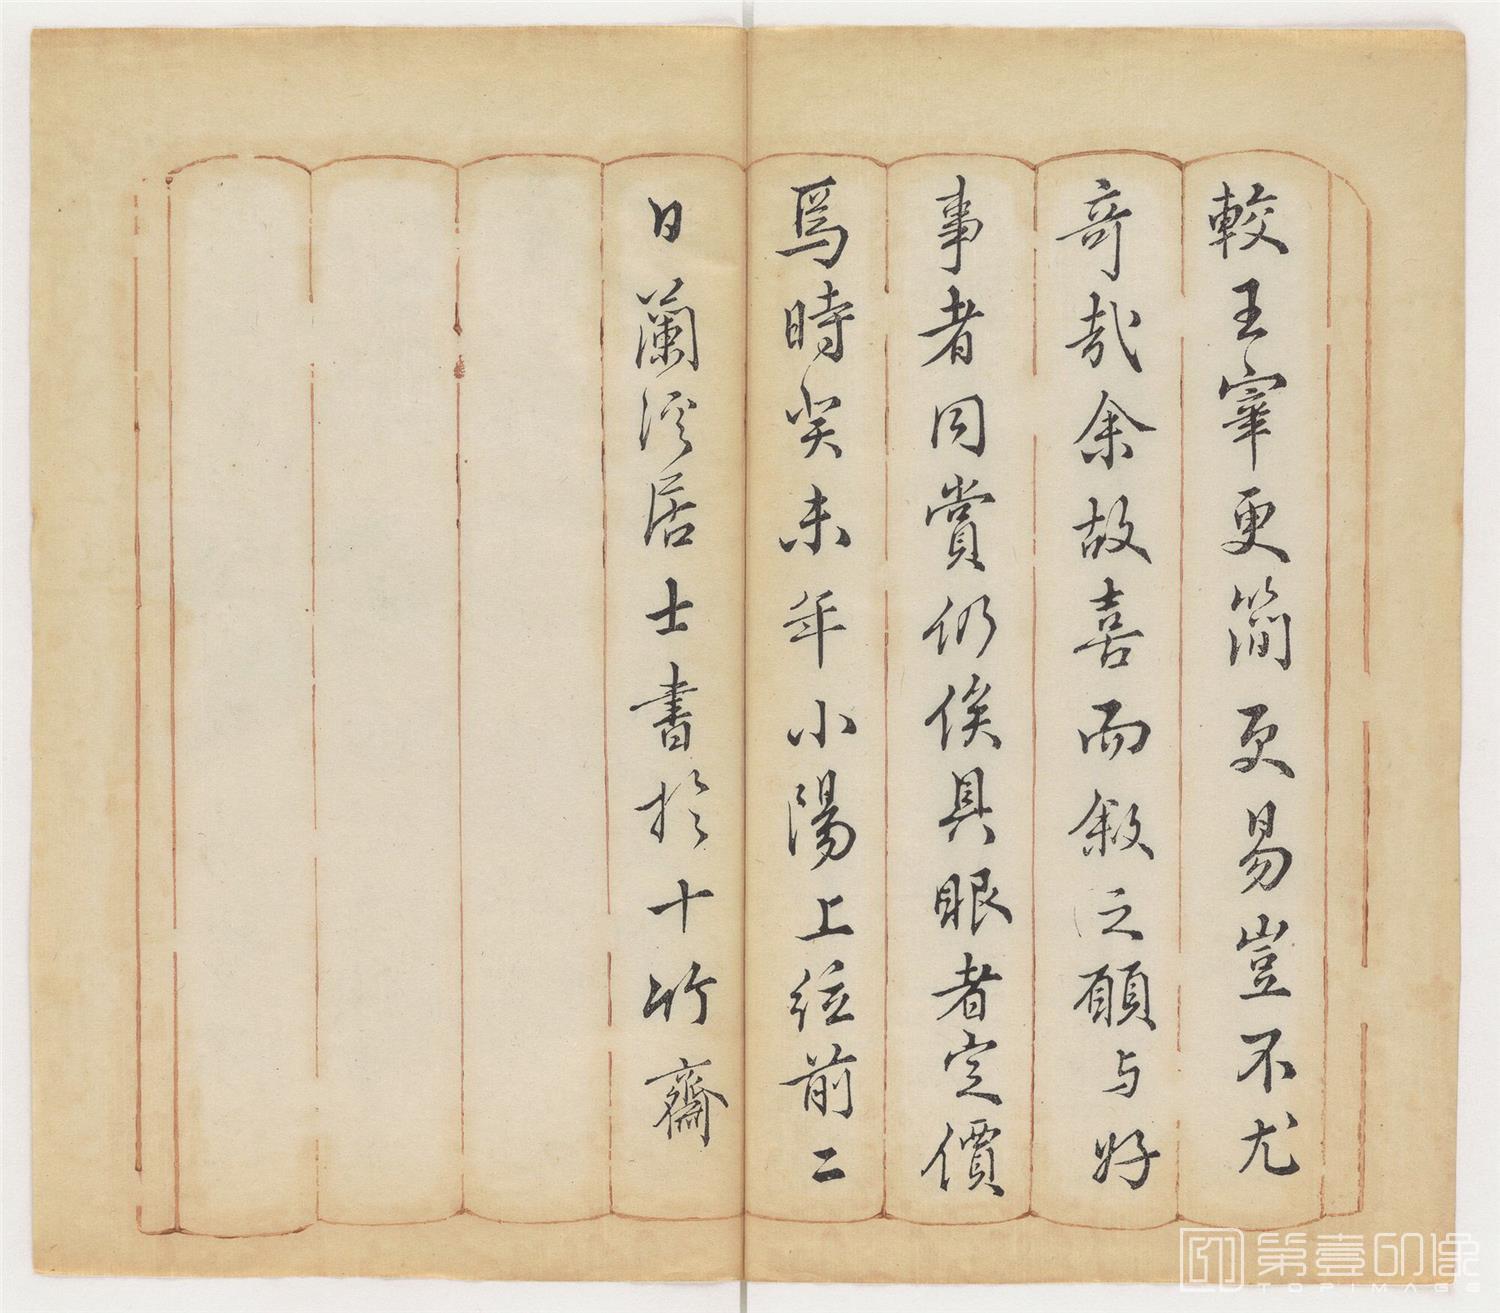 較王宰更簡更易豈不尤
奇哉余故喜而敘之願与好
事者同賞仍俟具眼者定價
焉時癸未年小陽上弦前二
日蘭溪居士書於十竹齋
第壹印像
TOPIMAGE